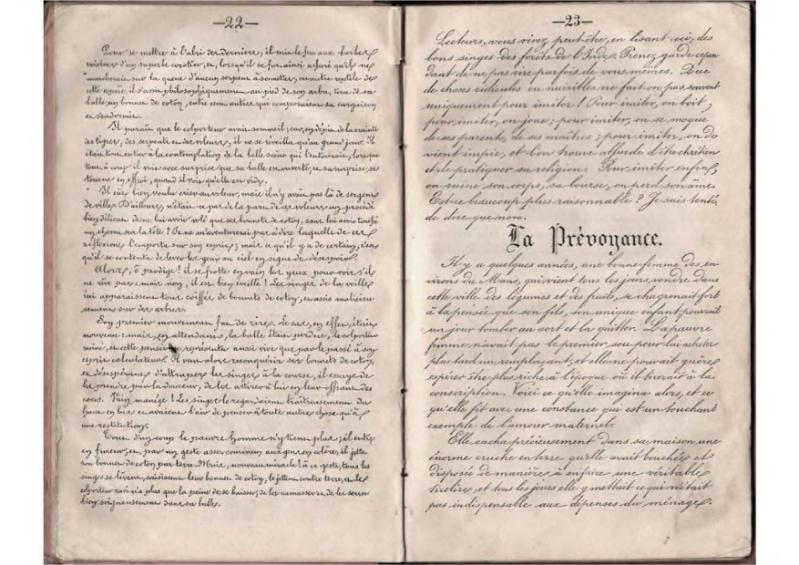 —22—
Pour se mettre à l'abri des derniers, il mit le feu aux herbes
voisines d'un superbe cocotier, et, lorsqu'il se fut ainsi assuré qu'il ne
marcherait sur la queue d'aucun serpent à sonnettes, ou autre reptile de
cette espèce, il s'assit philosophiquement au pied de son arbre, tira de sa
balle un bonnet de coton, entre cent autres qui composaient sa cargaison
et s'endormit.
Il paraît que le colporteur avait sommeil; car, en dépit de la crainte
des tigres, des serpents et des voleurs, il ne se réveilla qu'au grand jour. Il
était tout entier à la contemplation de la belle scène qui l'entourait, lorsque
tout à coup il vit avec surprise que sa balle est ouverte, sa surprise se
tourne en effroi, quand il voit qu'elle est vide.
Il eût bien voulu crier au voleur, mais il n'y avait pas là de sergents
de ville. D'ailleurs, n'était-ce pas de la part des voleurs un procédé
bien délicat de ne lui avoir volé que ses bonnets de coton, sans lui avoir touché
un cheveu sur la tête? Je ne m'aventurerai pas à dire laquelle de ces
réflexions l'emporta sur son esprit; mais ce qu'il y a de certain, c'est
qu'il se contenta de lever les yeux au ciel en signe de désespoir.
Alors, ô prodige! il se frotte en vain les yeux pour voir s'il
ne rêve pas; mais non, il est bien éveillé! Les singes de la veille
lui apparaissent tous coiffés de bonnets de coton, et assis malicieu-
sement sur des arbres.
Son premier mouvement fut de rire. Le cas, en effet, était
nouveau: mais, en attendant, la balle était perdue, le colporteur
ruiné, et cette pensée se représenta aussi vive que par le passé à son
esprit calculateur. Il veut alors reconquérir ses bonnets de coton,
et désespérant d'attraper les singes à la course, il essaye de
les prendre par la douceur, de les attirer à lui en leur offrant des
cocos. Vain manège! Les singes le regardaient traîtreusement du
haut en bas et avaient l'air de penser à toute autre chose qu'à
une restitution.
Tout d'un coup le pauvre homme n'y tient plus; il entre
en fureur, et, par un geste assez commun aux gens en colère, il jette
son bonnet de coton par terre. Mais, nouveau miracle! à ce geste, tous les
singes se lèvent, saisissent leur bonnet de coton, le jettent contre terre, et le
colporteur n'a plus que la peine de se baisser, de les ramasser et de les serrer
bien soigneusement dans sa balle.
—23—
Lecteurs, vous vivez peut-être, en lisant ceci, des
bons singes des forêts de l'Inde. Prenez garde cepen
dant de ne pas rire parfois de vous-mêmes. Que
de choses ridicules ou nuisibles ne fait-on pas souvent
uniquement pour imiter! Pour imiter, on boit;
pour imiter, on joue; pour imiter, on se moque
de ses parents, de ses maîtres; pour imiter, on de
vient impie, et l'on trouve absurde d'être chrétien
et de pratiquer sa religion. Pour imiter enfin,
on ruine son corps, sa bourse, on perd son âme.
Est-ce beaucoup plus raisonnable? Je suis tenté
de dire que non.
La Prévoyance.
Il y a quelques années, une bonne femme des en-
virons du Mans, qui vient tous les jours vendre dans
cette ville des légumes et des fruits, se chagrinait fort
à la pensée que son fils, son unique enfant pouvait
un jour tomber au sort et la quitter. La pauvre
femme n'avait pas le premier sou pour lui acheter
plus tard un remplaçant, et elle ne pouvait guère
espérer être plus riche à l'époque où il tirerait à la
conscription. Voici ce qu'elle imagina alors, et ce
qu'elle fit avec une constance qui est un touchant
exemple de l'amour maternel.
Elle cacha précieusement dans sa maison une
énorme cruche en terre qu'elle avait bouchée et
disposée de manière à en faire une véritable
tirelire, et tous les jours elle y mettait ce qui n'était
pas indispensable aux dépenses du ménage.